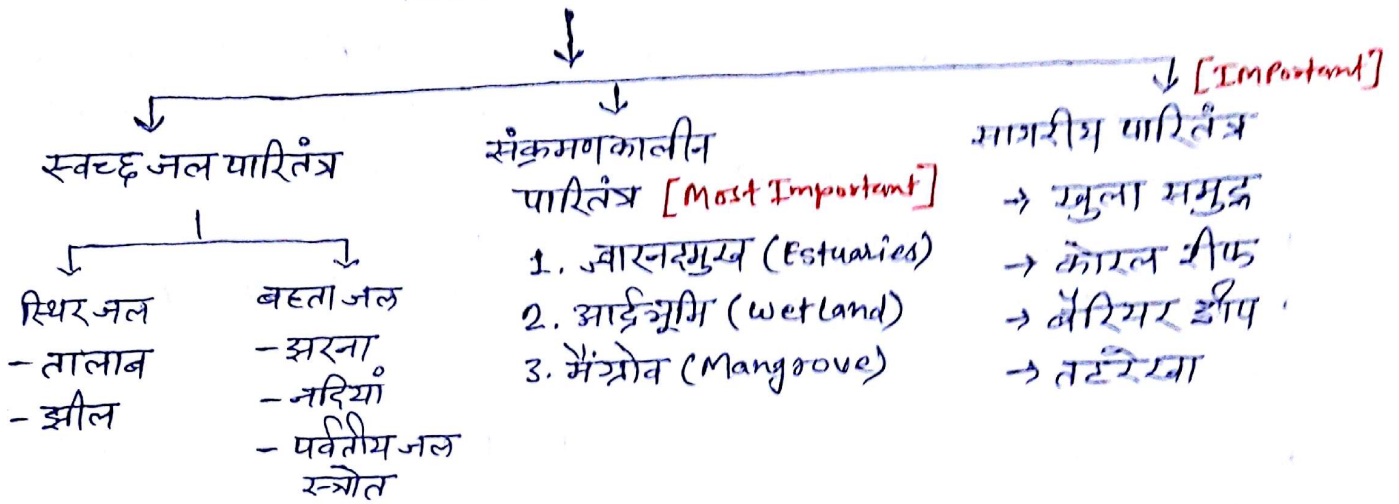 [Important]
स्वच्छ जल पारितंत्र
स्थिर जल
- तालाब
- झील
बहता जल
- झरना
- नदियां
- पर्वतीय जल
स्त्रोत
संक्रमणकालीन
पारितंत्र [Most Important]
1. ज्वारनदमुख (Estuaries)
2. आर्द्रभूमि (wetland)
3. मैंग्रोव (Mangrove)
सागरीय पारितंत्र
→ खुला समुद्र
→ कोरल रीफ
→ बैरियर द्वीप
→ तटरेखा